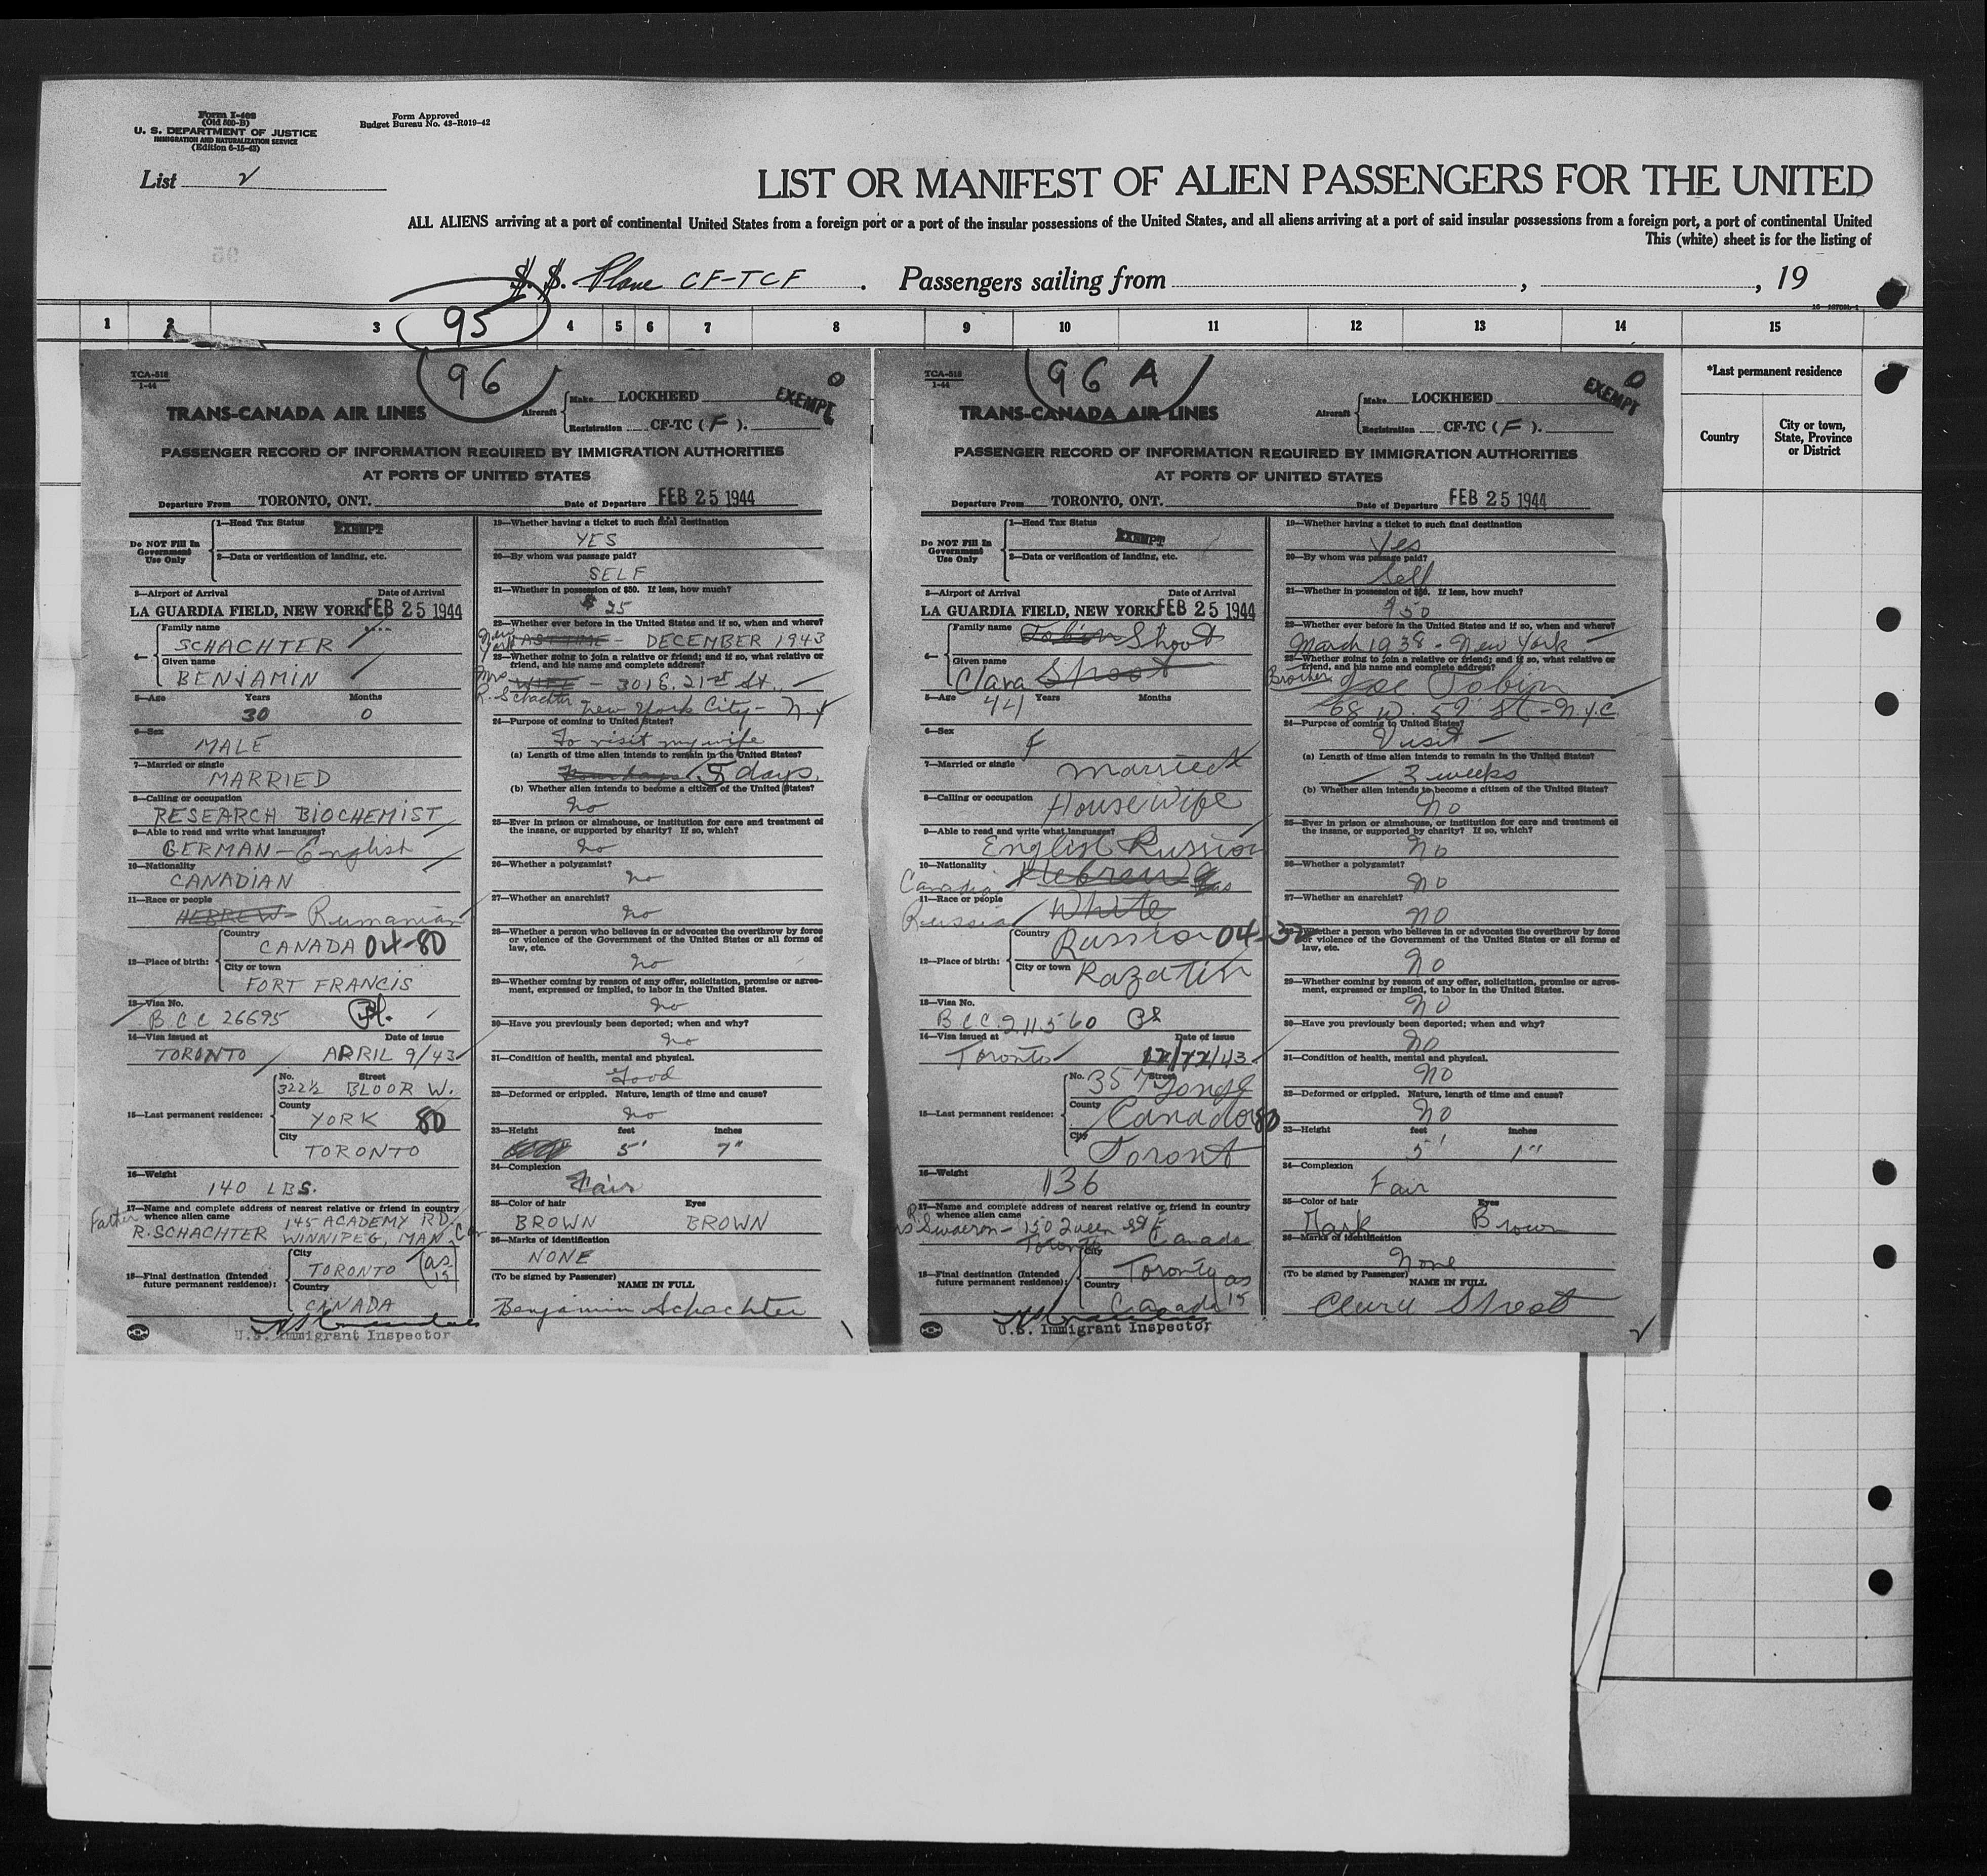 Form I-408
(Old 500-B)
U. S. DEPARTMENT OF JUSTICE
IMMIGRATION AND NATURALIZATION SERVICE
(Edition 6-15-43)
Form Approved
Budget Bureau No. 43-R019-42
List
LIST OR MANIFEST OF ALIEN PASSENGERS FOR THE UNITED
ALL ALIENS arriving at a port of continental United States from a foreign port or a port of the insular possessions of the United States, and all aliens arriving at a port of said insular possessions from a foreign port, a port of continental United
This (white) sheet is for the listing of
S. S. Plane CF-TCF. Passengers sailing from , , 19
95
1 2 3 4 5 6 7 8 9 10 11 12 13 14 15
*Last permanent residence
Country
City or town, State, Province or District
96
TCA-518
1-44
TRANS-CANADA AIR LINES
Aircraft
Make LOCKHEED
Registration CF-TC (F).
EXEMPT
PASSENGER RECORD OF INFORMATION REQUIRED BY IMMIGRATION AUTHORITIES
AT PORTS OF UNITED STATES
Departure From TORONTO, ONT. Date of Departure FEB 25 1944
Do NOT Fill In Government Use Only
1—Head Tax Status EXEMPT
2—Data or verification of landing, etc.
3—Airport of Arrival Date of Arrival
LA GUARDIA FIELD, NEW YORK FEB 25 1944
4— Family name
SCHACHTER
Given name
BENJAMIN
5—Age Years Months
30 0
6—Sex
MALE
7—Married or single
MARRIED
8—Calling or occupation
RESEARCH BIOCHEMIST
9—Able to read and write what languages?
GERMAN - English
10—Nationality
CANADIAN
11—Race or people
HEBREW Rumanian
12—Place of birth:
Country
CANADA 04-80
City or town
FORT FRANCIS
13—Visa No.
B.C.C 26695
14—Visa issued at Date of issue
TORONTO APRIL 9/43
15—Last permanent residence:
No. Street
322½ BLOOR W.
County
YORK 80
City
TORONTO
16—Weight
140 LBS.
17—Name and complete address of nearest relative or friend in country whence alien came
Father 145 ACADEMY RD.
R. SCHACHTER WINNIPEG, MAN. Can
18—Final destination (Intended future permanent residence):
City
TORONTO (as 15)
Country
CANADA
U.S. Immigrant Inspector
19—Whether having a ticket to such final destination
YES
20—By whom was passage paid?
SELF
21—Whether in possession of $50. If less, how much?
$25
22—Whether ever before in the United States and if so, when and where?
New York LAST TIME - DECEMBER 1943
23—Whether going to join a relative or friend; and if so, what relative or friend, and his name and complete address?
Mrs R. Schachter WIFE - 301 E. 21st St.
New York City - N.Y
24—Purpose of coming to United States?
To visit my wife
(a) Length of time alien intends to remain in the United States?
Four days 5 days.
(b) Whether alien intends to become a citizen of the United States?
No
25—Ever in prison or almshouse, or institution for care and treatment of the insane, or supported by charity? If so, which?
No
26—Whether a polygamist?
No
27—Whether an anarchist?
No
28—Whether a person who believes in or advocates the overthrow by force or violence of the Government of the United States or all forms of law, etc.
No
29—Whether coming by reason of any offer, solicitation, promise or agreement, expressed or implied, to labor in the United States.
No
30—Have you previously been deported; when and why?
No
31—Condition of health, mental and physical.
Good
32—Deformed or crippled. Nature, length of time and cause?
No
33—Height feet inches
5' 7"
34—Complexion
Fair
35—Color of hair Eyes
BROWN BROWN
36—Marks of identification
NONE
(To be signed by Passenger) NAME IN FULL
Benjamin Schachter
96 A
TCA-518
1-44
TRANS-CANADA AIR LINES
Aircraft
Make LOCKHEED
Registration CF-TC (F).
EXEMPT
PASSENGER RECORD OF INFORMATION REQUIRED BY IMMIGRATION AUTHORITIES
AT PORTS OF UNITED STATES
Departure From TORONTO, ONT. Date of Departure FEB 25 1944
Do NOT Fill In Government Use Only
1—Head Tax Status EXEMPT
2—Data or verification of landing, etc.
3—Airport of Arrival Date of Arrival
LA GUARDIA FIELD, NEW YORK FEB 25 1944
4— Family name
Tobin Shoot
Given name
Clara Shoot
5—Age Years Months
44
6—Sex
F
7—Married or single
Married
8—Calling or occupation
House Wife
9—Able to read and write what languages?
English Russian
10—Nationality
Canadian Hebrew
11—Race or people
Russian White
12—Place of birth:
Country
Russia
City or town
Razatin
13—Visa No.
B.C.C. 211560
14—Visa issued at Date of issue
Toronto 12/22/43
15—Last permanent residence:
No. Street
357 Yonge
County
Canada 80
City
Toront
16—Weight
136
17—Name and complete address of nearest relative or friend in country whence alien came
150 Queen St E
Toronto Canada
18—Final destination (Intended future permanent residence):
City
Toronto as 15
Country
Canada
U.S. Immigrant Inspector
19—Whether having a ticket to such final destination
Yes
20—By whom was passage paid?
Self
21—Whether in possession of $50. If less, how much?
22—Whether ever before in the United States and if so, when and where?
March 1938 - New York
23—Whether going to join a relative or friend; and if so, what relative or friend, and his name and complete address?
Brother Joe Tobin
68 W. St - N.Y.C
24—Purpose of coming to United States?
Visit
(a) Length of time alien intends to remain in the United States?
3 weeks
(b) Whether alien intends to become a citizen of the United States?
No
25—Ever in prison or almshouse, or institution for care and treatment of the insane, or supported by charity? If so, which?
No
26—Whether a polygamist?
No
27—Whether an anarchist?
No
28—Whether a person who believes in or advocates the overthrow by force or violence of the Government of the United States or all forms of law, etc.
No
29—Whether coming by reason of any offer, solicitation, promise or agreement, expressed or implied, to labor in the United States.
No
30—Have you previously been deported; when and why?
No
31—Condition of health, mental and physical.
No
32—Deformed or crippled. Nature, length of time and cause?
No
33—Height feet inches
5' 1"
34—Complexion
Fair
35—Color of hair Eyes
Dark Brown
36—Marks of identification
None
(To be signed by Passenger) NAME IN FULL
Clara Shoot